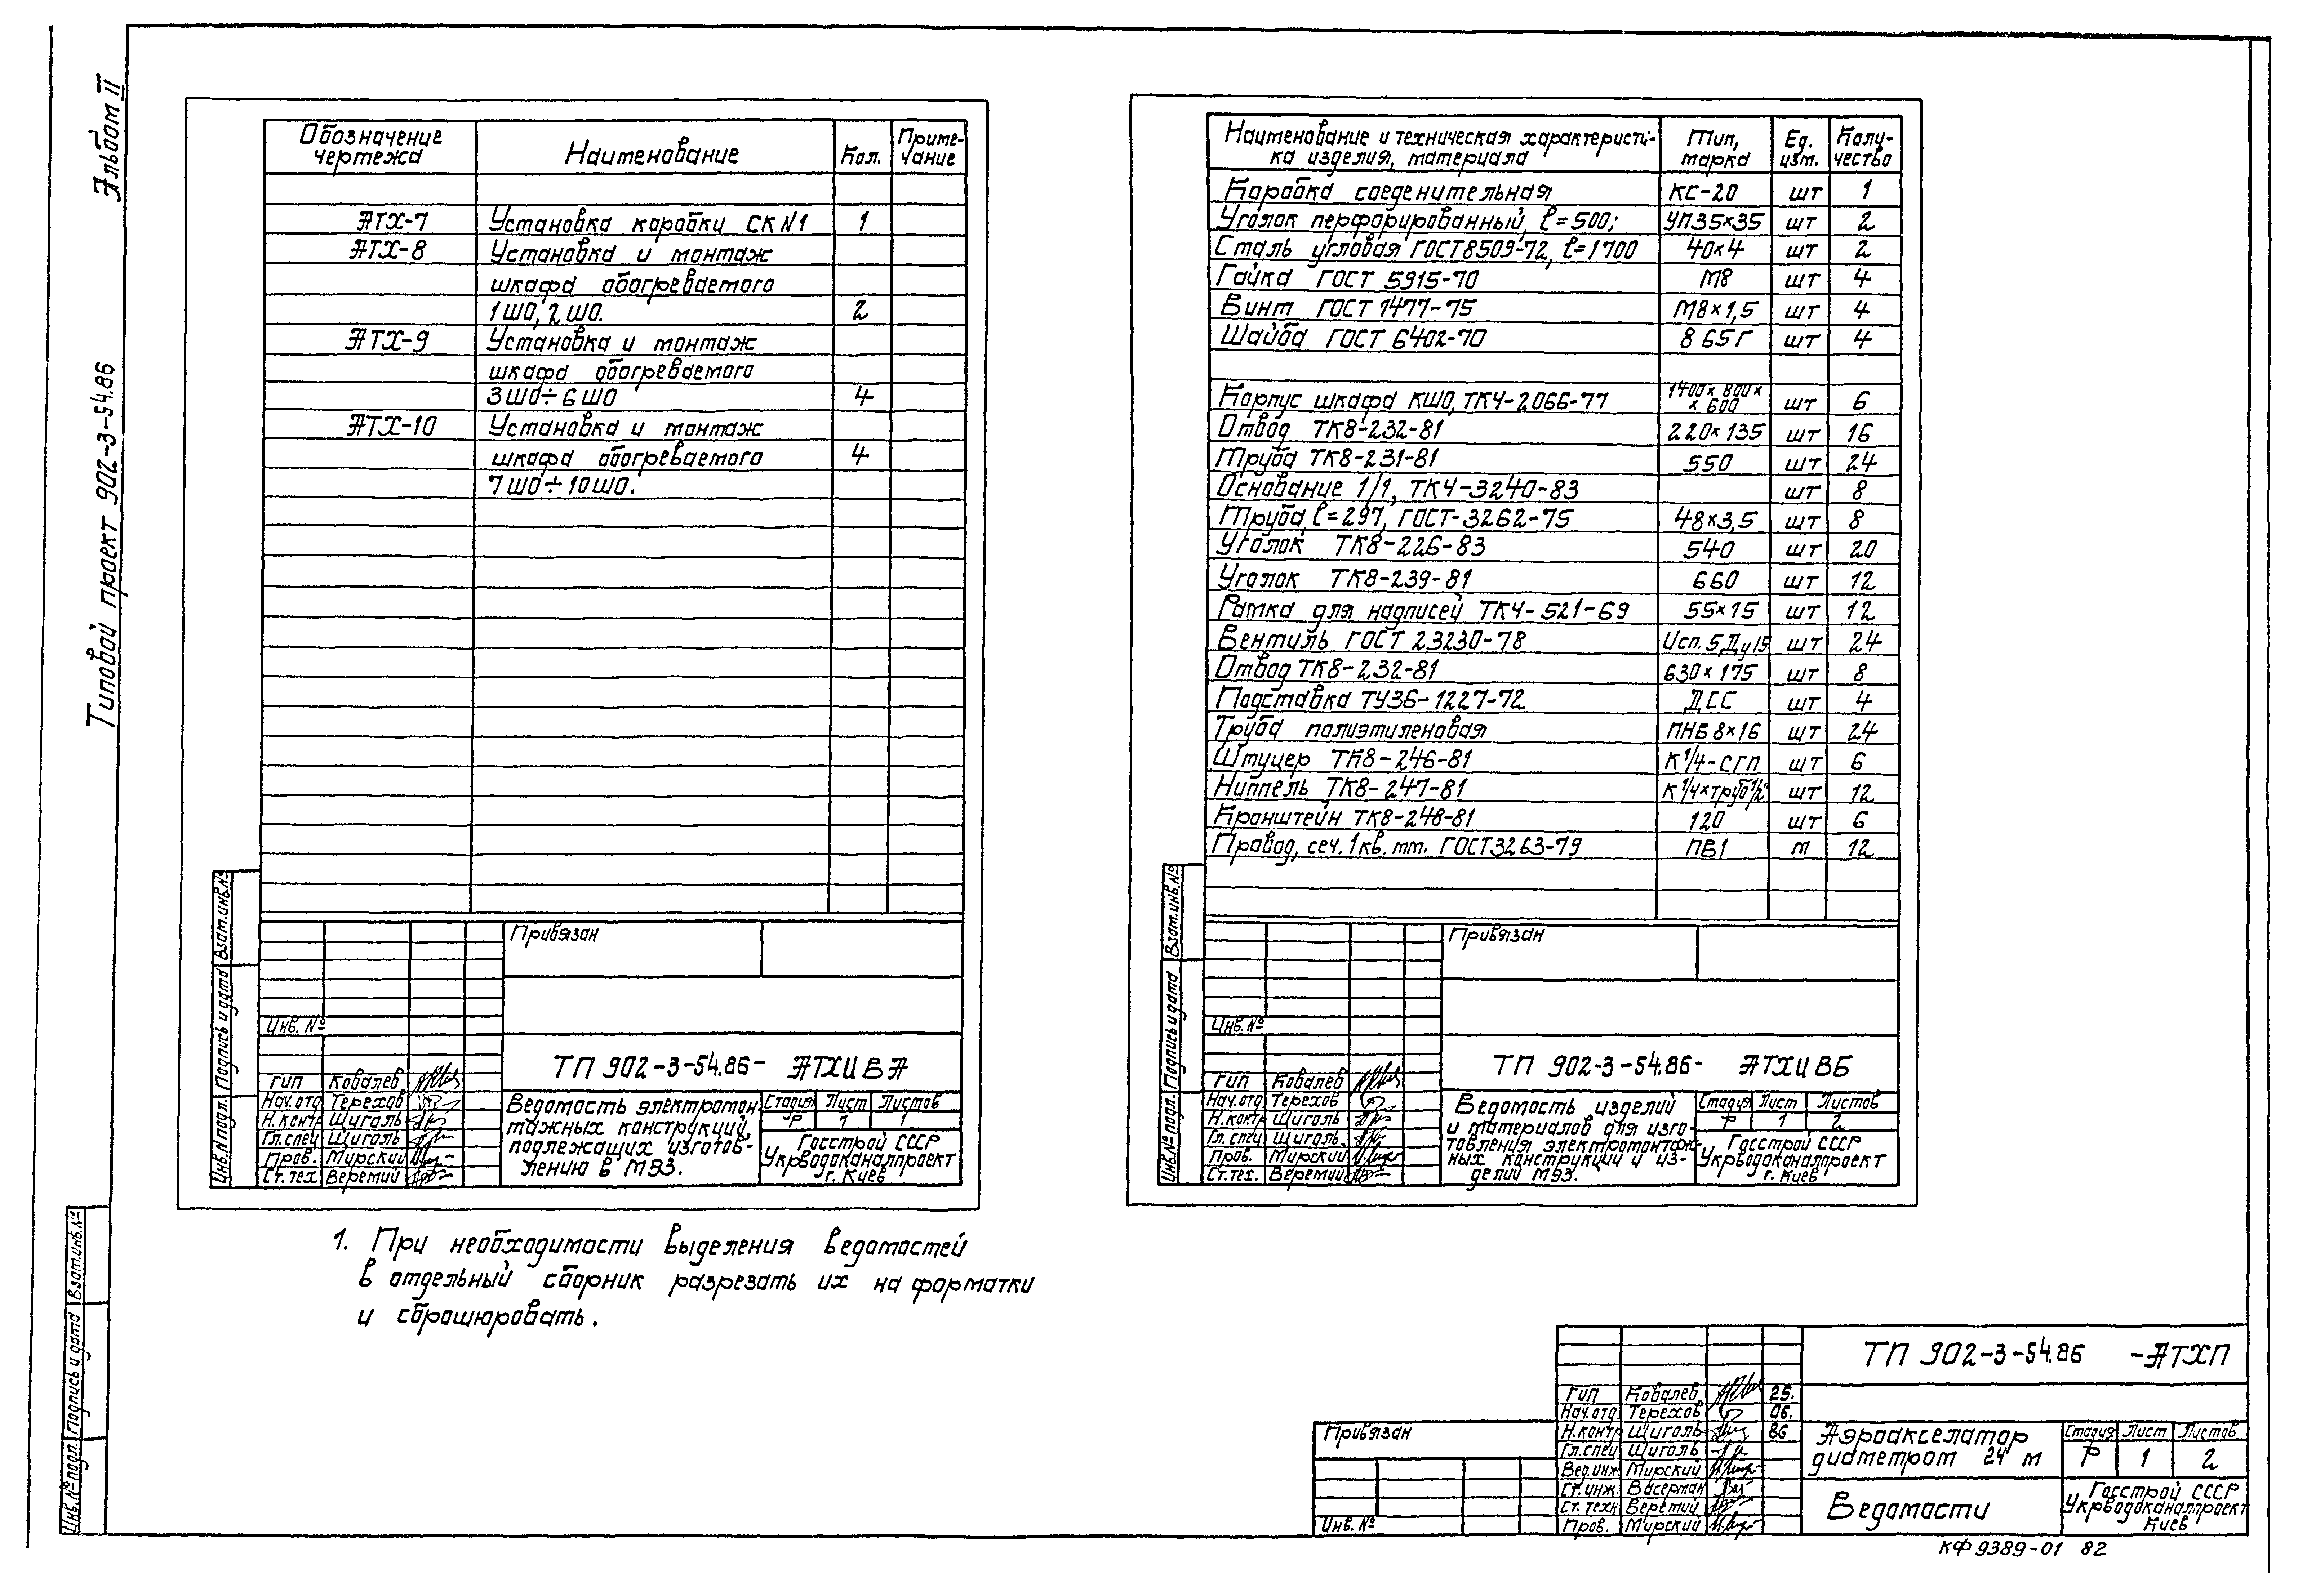 Альбом II
Типовой проект 902-3-54.86
Обозначение чертежа | Наименование | Кол. | Приме-чание
АТХ-7 | Установка коробки СК N1 | 1
АТХ-8 | Установка и монтаж
шкафа обогреваемого
1ШО, 2ШО. | 2
АТХ-9 | Установка и монтаж
шкафа обогреваемого
3ШО÷6ШО | 4
АТХ-10 | Установка и монтаж
шкафа обогреваемого | 4
7ШО÷10ШО.
Взам.инв.№
Подпись и дата
Инв.№подл.
Привязан
Инв. №
ТП 902-3-54.86- АТХИВА
ГИП Ковалев
Нач.отд Терехов
Н.контр Щиголь
Гл.спец Щиголь
Пров. Мирский
Ст.тех Веремий
Ведомость электромон-
тажных конструкций,
подлежащих изготов-
лению в МЭЗ.
Стадия Лист Листов
Р 1 1
Госстрой СССР
Укрводоканалпроект
г. Киев
Наименование и техническая характеристи-
ка изделия, материала | Тип, марка | Ед. изм. | Коли-чество
Коробка соеденительная | КС-20 | шт | 1
Уголок перфорированный, ℓ=500; | УП35×35 | шт | 2
Сталь угловая ГОСТ8509-72, ℓ=1700 | 40×4 | шт | 2
Гайка ГОСТ 5915-70 | М8 | шт | 4
Винт ГОСТ 1477-75 | М8×1,5 | шт | 4
Шайба ГОСТ 6402-70 | 8 65Г | шт | 4
Корпус шкафа КШО, ТК4-2066-77 | 1400×800××600 | шт | 6
Отвод ТК8-232-81 | 220×135 | шт | 16
Труба ТК8-231-81 | 550 | шт | 24
Основание 1/1, ТК4-3240-83 | шт | 8
Труба, ℓ=297, ГОСТ-3262-75 | 48×3,5 | шт | 8
Уголок ТК8-226-83 | 540 | шт | 20
Уголок ТК8-239-81 | 660 | шт | 12
Рамка для надписей ТК4-521-69 | 55×15 | шт | 12
Вентиль ГОСТ 23230-78 | Исп.5,Ду15 | шт | 24
Отвод ТК8-232-81 | 630×175 | шт | 8
Подставка ТУ36-1227-72 | ДСС | шт | 4
Труба полиэтиленовая | ПНБ 8×16 | шт | 24
Штуцер ТК8-246-81 | К1/4-СГП | шт | 6
Ниппель ТК8-247-81 | К1/4×труб1/2" | шт | 12
Кронштейн ТК8-248-81 | 120 | шт | 6
Провод, сеч.1кв.мм. ГОСТ3263-79 | ПВ1 | м | 12
Взам.инв.№
Подпись и дата
Инв.№подл.
Привязан
Инв.№
ТП 902-3-54.86- АТХИВБ
ГИП Ковалев
Нач.отд Терехов
Н.контр Щиголь
Гл.спец Щиголь
Пров. Мирский
Ст.тех. Веремий
Ведомость изделий
и материалов для изго-
товления электромонтаж-
ных конструкций и из-
делий МЭЗ.
Стадия Лист Листов
Р 1 2
Госстрой СССР
Укрводоканалпроект
г. Киев
1. При необходимости выделения ведомостей
в отдельный сборник разрезать их на форматки
и сброшюровать.
Взам.инв.№
Подпись и дата
Инв.№подл.
Привязан
Инв. №
ТП 902-3-54.86 -АТХП
ГИП Ковалев 25.
Нач.отд. Терехов 06.
Н.контр Щиголь 86
Гл.спец Щиголь
Вед.инж. Мирский
Ст.инж. Васерман
Ст.техн Веремий
Пров. Мирский
Аэроакселатор
диаметром 24 м
Стадия Лист Листов
Р 1 2
Ведомости
Госстрой СССР
Укрводоканалпроект
Киев
КФ 9389-01 82